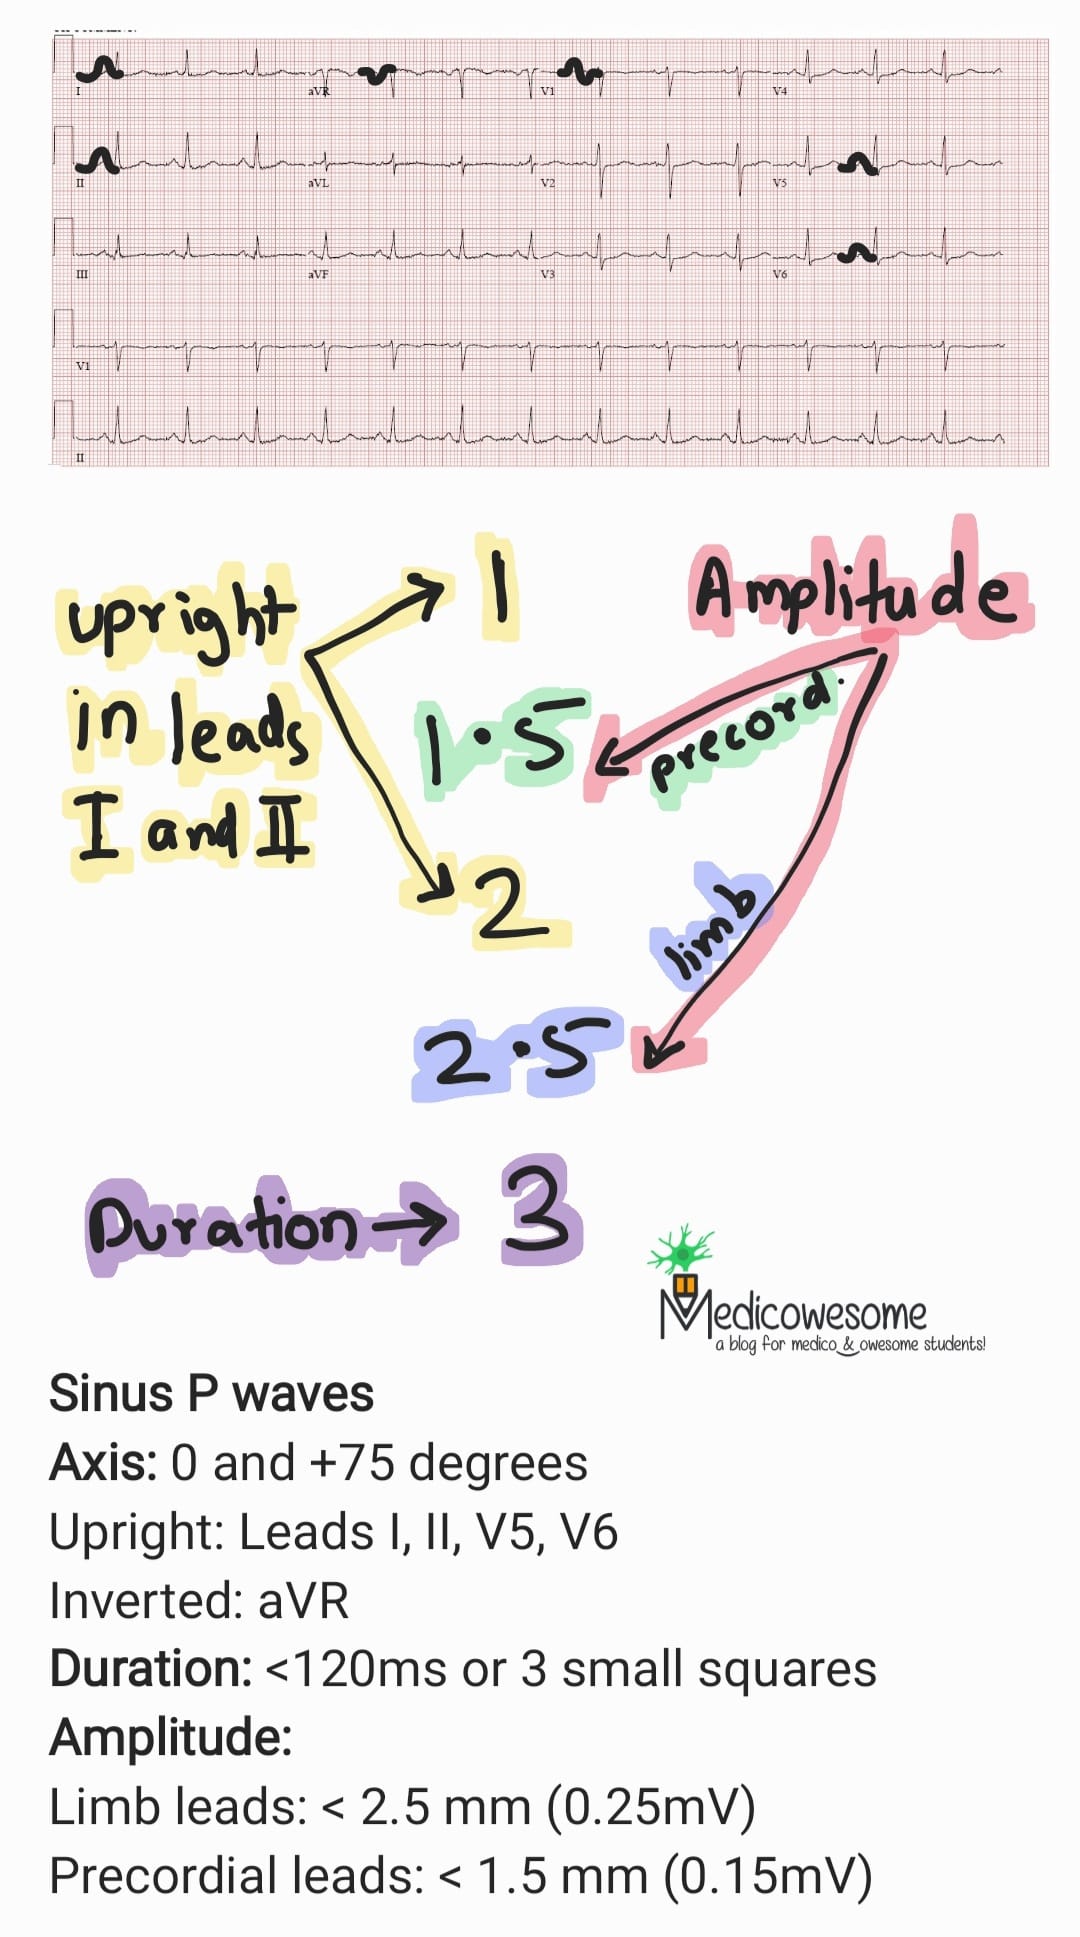 I
aVR
V1
V4
II
aVL
V2
V5
III
aVF
V3
V6
V1
II
upright
in leads
I and II
1
1.5
2
2.5
Amplitude
precord.
limb
Duration → 3
Medicowesome
a blog for medico & owesome students!
Sinus P waves
Axis: 0 and +75 degrees
Upright: Leads I, II, V5, V6
Inverted: aVR
Duration: <120ms or 3 small squares
Amplitude:
Limb leads: < 2.5 mm (0.25mV)
Precordial leads: < 1.5 mm (0.15mV)